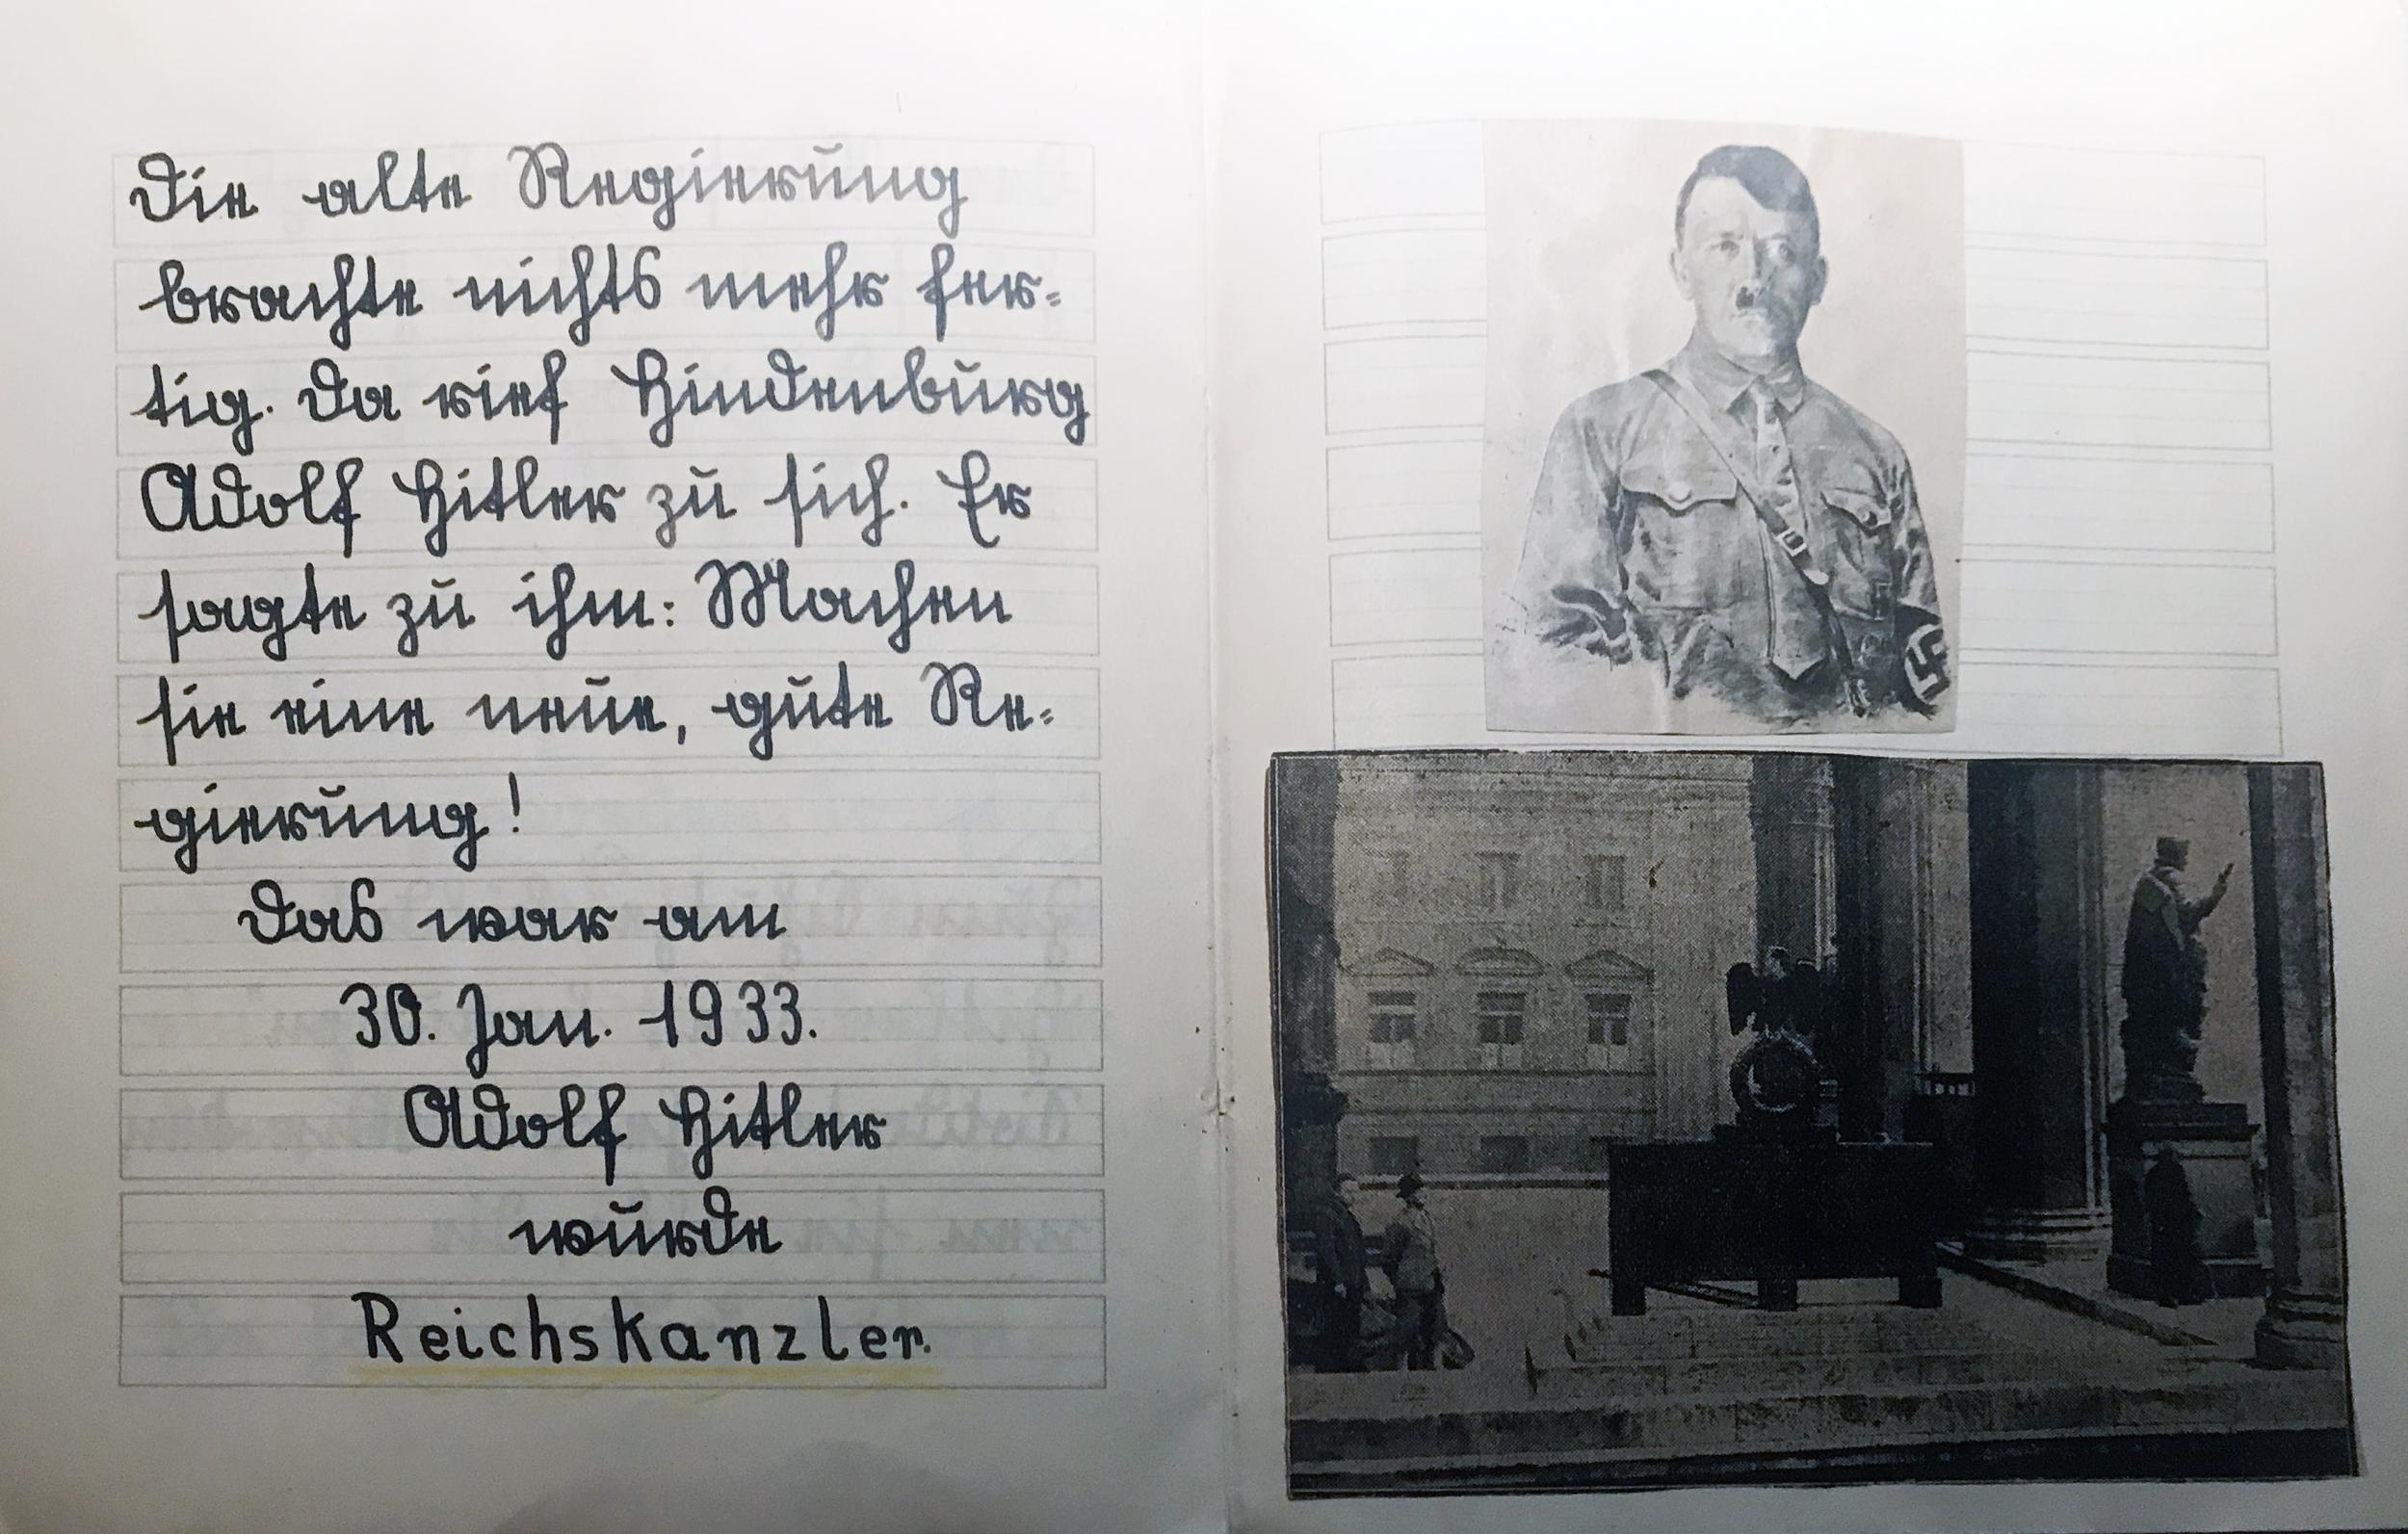 Die alte Regierung
brachte nichts mehr fer=
tig. Da rief Hindenburg
Adolf Hitler zu sich. Er
sagte zu ihm: Machen
sie eine neue, gute Re=
gierung!
Das war am
30. Jan. 1933.
Adolf Hitler
wurde
Reichskanzler.